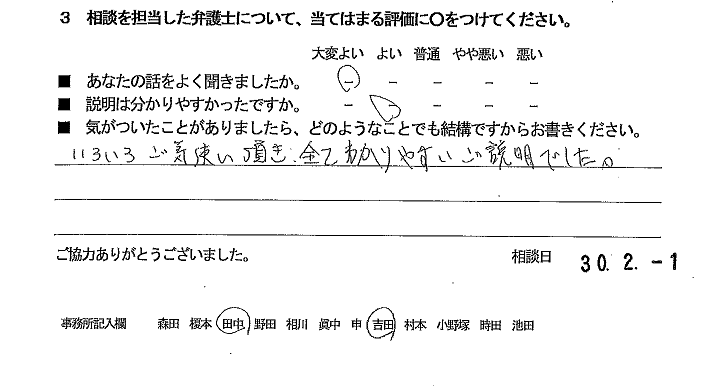 3 相談を担当した弁護士について、当てはまる評価に〇をつけてください。
大変よい よい 普通 やや悪い 悪い
■ あなたの話をよく聞きましたか。 － － － － －
■ 説明は分かりやすかったですか。 － － － － －
■ 気がついたことがありましたら、どのようなことでも結構ですからお書きください。
いろいろご気使い頂き、全てわかりやすいご説明でした。
ご協力ありがとうございました。 相談日 30. 2. -1
事務所記入欄 森田 榎本 田中 野田 相川 眞中 申 吉田 村本 小野塚 時田 池田